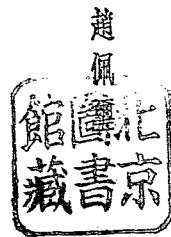 趙佩
北京
圖書
館藏